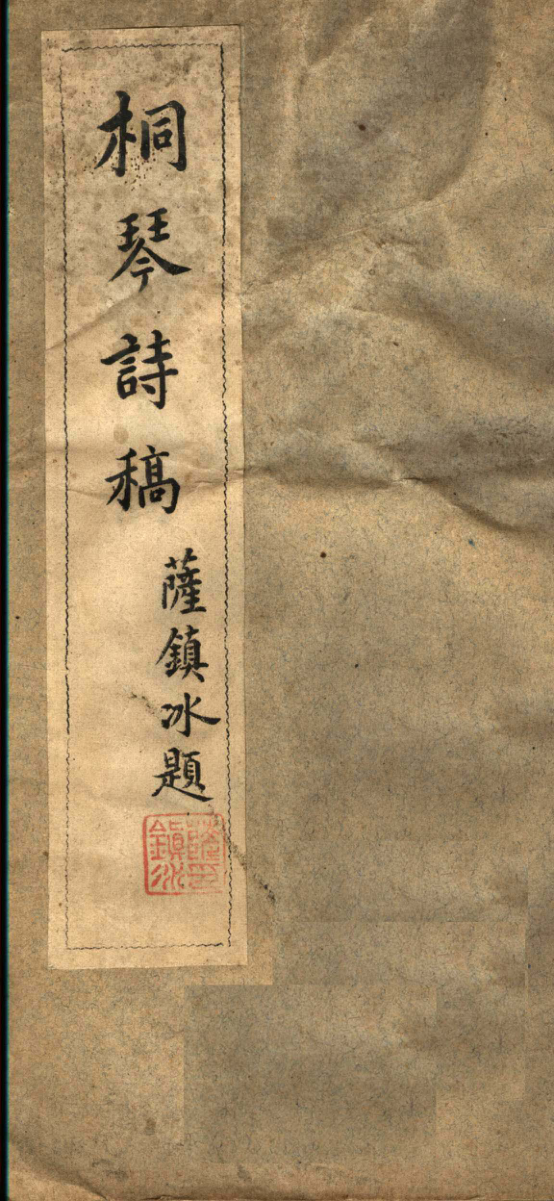 桐琴詩稿
薩鎮冰題
薩鎮冰印